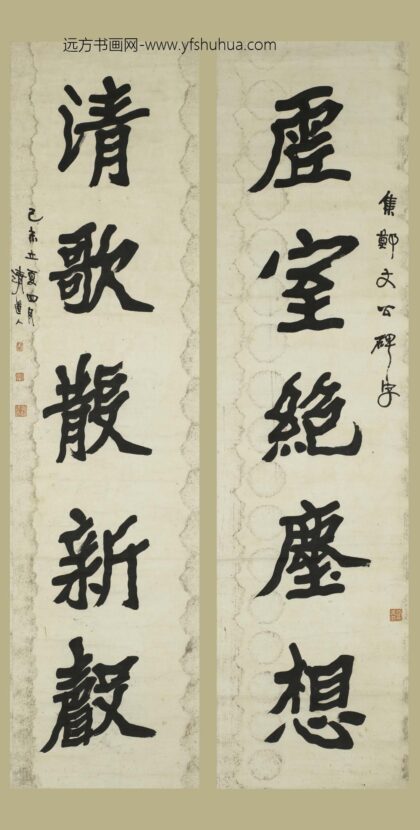 远方书画网-www.yfshuhua.com
集鄭文公碑字
虛室絕塵想
清歌散新聲
己未立夏四月
清道人